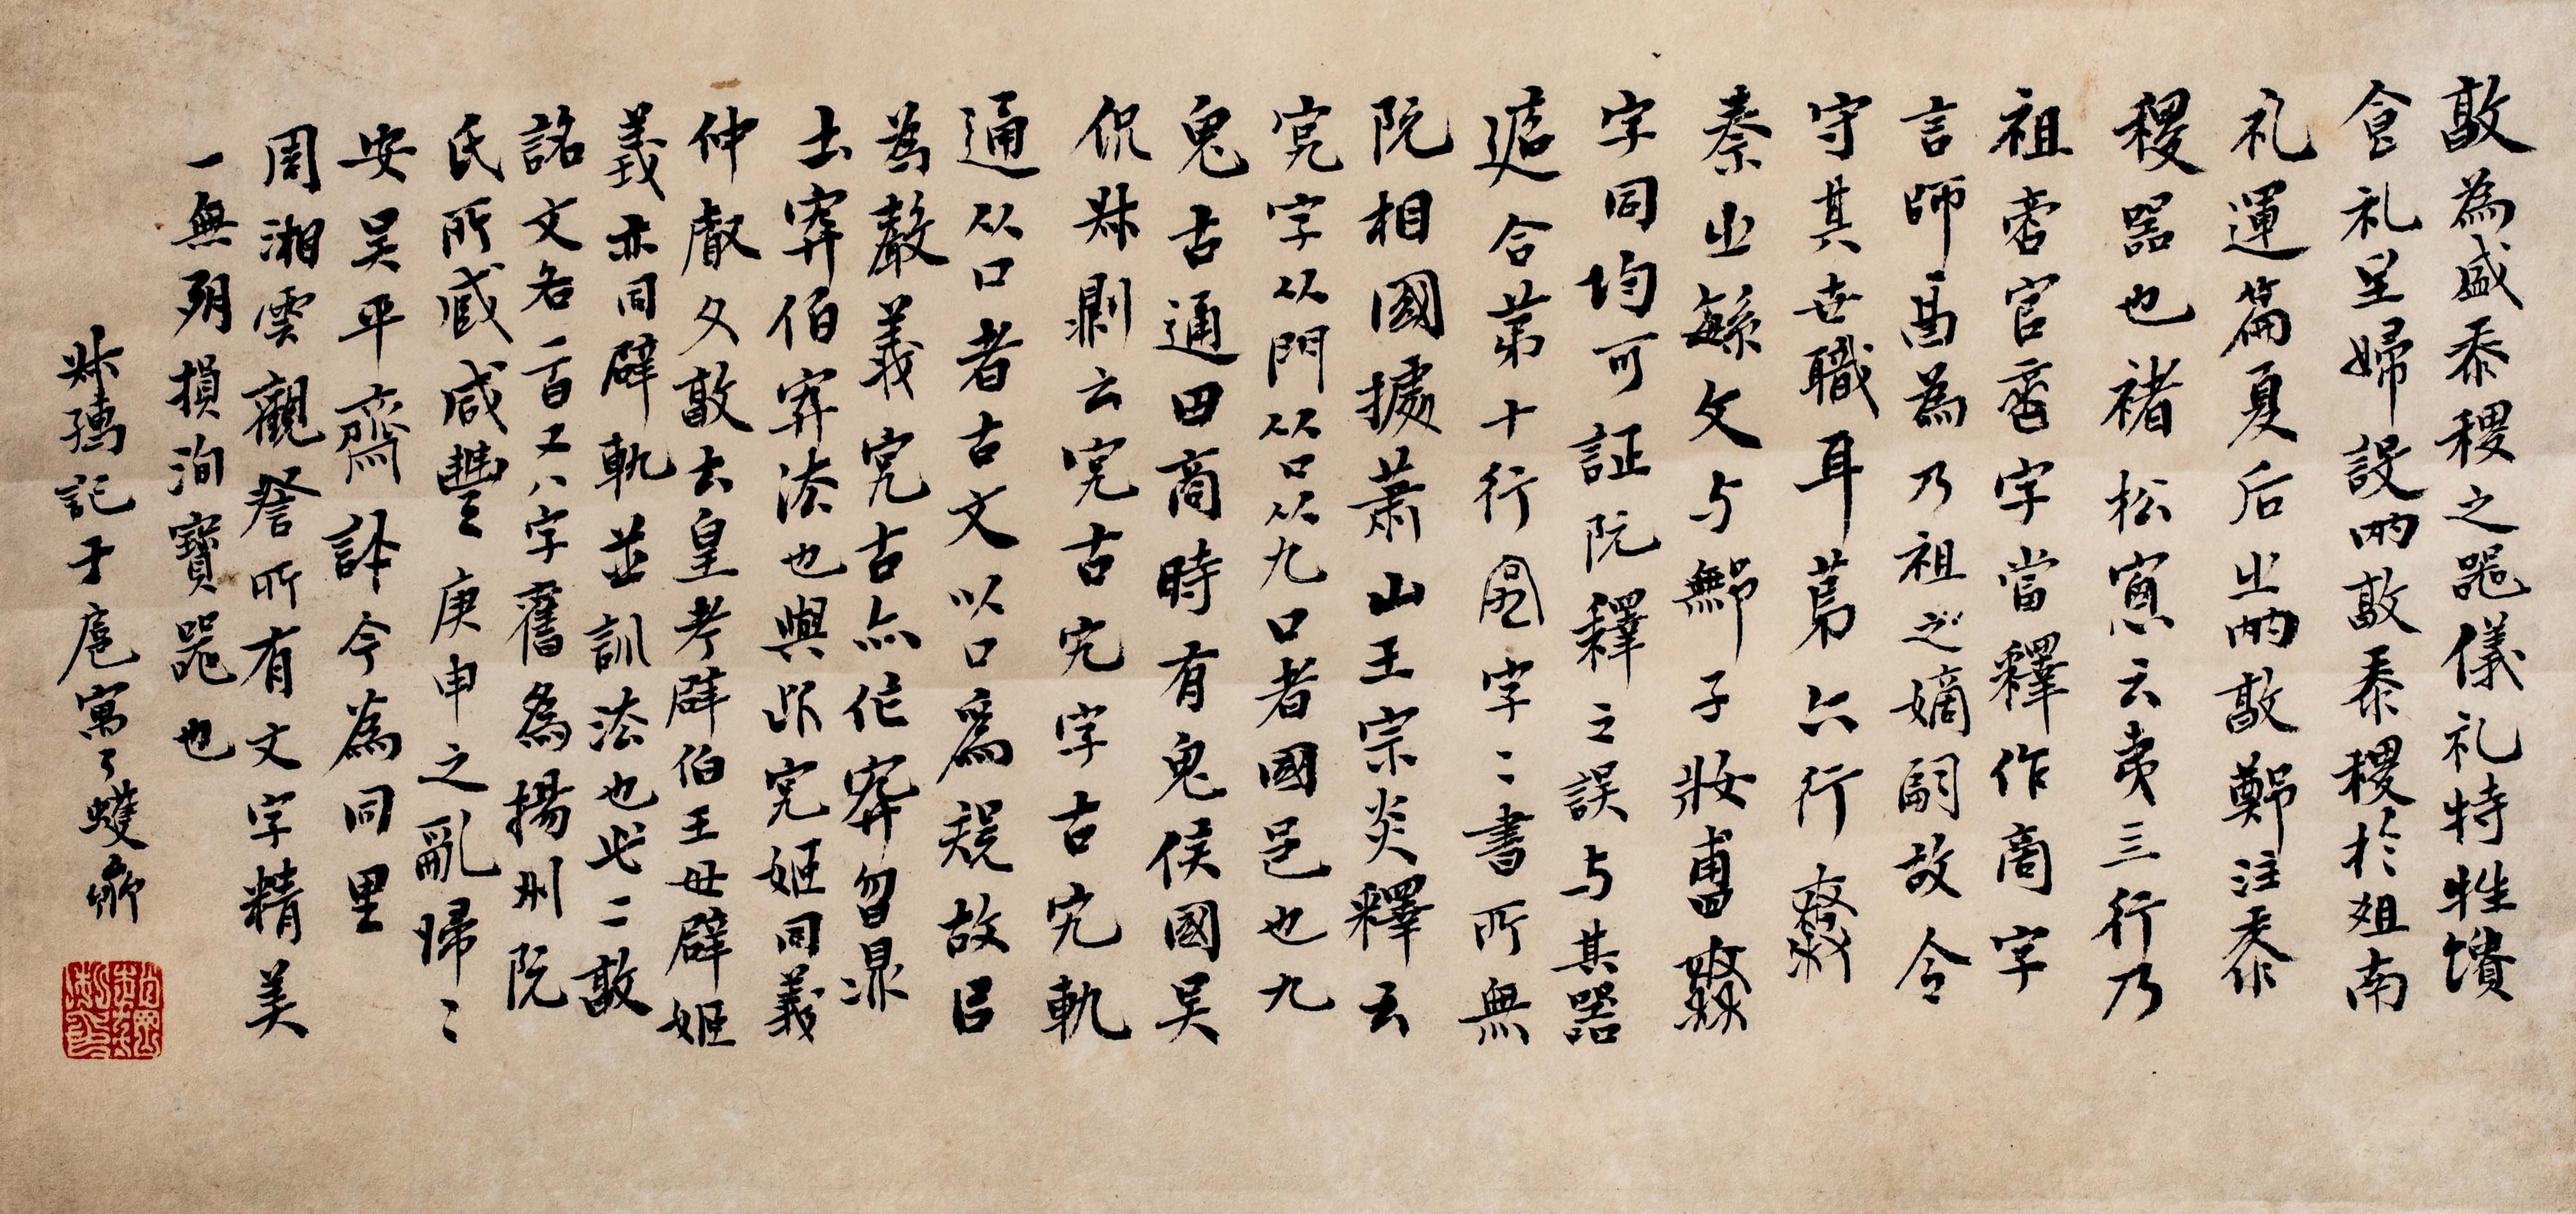 敦為盛黍稷之器儀礼特牲饋
食礼主婦設两敦黍稷於俎南
礼運篇夏后之两敦鄭注黍
稷器也褚松窗云夷三行乃
祖啻官啻字當釋作商字
言師酉為乃祖之嫡嗣故令
守其世職耳苐六行
秦之繇文与鄦子妝
字同均可証阮釋之誤与其器
盖合苐十行字二書所無
阮相國據蕭山王宗炎釋云
宄字从門从口从九口者國邑也九
鬼古通由商時有鬼侯國吴
侃叔剿云宄古宄字古宄軌
通从口者古文以口為規故㠯
為聲義宄古亦作穽曶鼎
士穽伯穽法也與此宄姬同義
仲䣙父敦云皇考辟伯王母辟姬
義亦同辟軌並訓法也此二敦
銘文各一百又八字舊為揚州阮
氏所臧咸豐庚申之亂歸二
安吴平齋許今為同里
周湘雲觀詧所有文字精美
一無剥損洵寶器也
叔孺記于扈寓之蠖齋